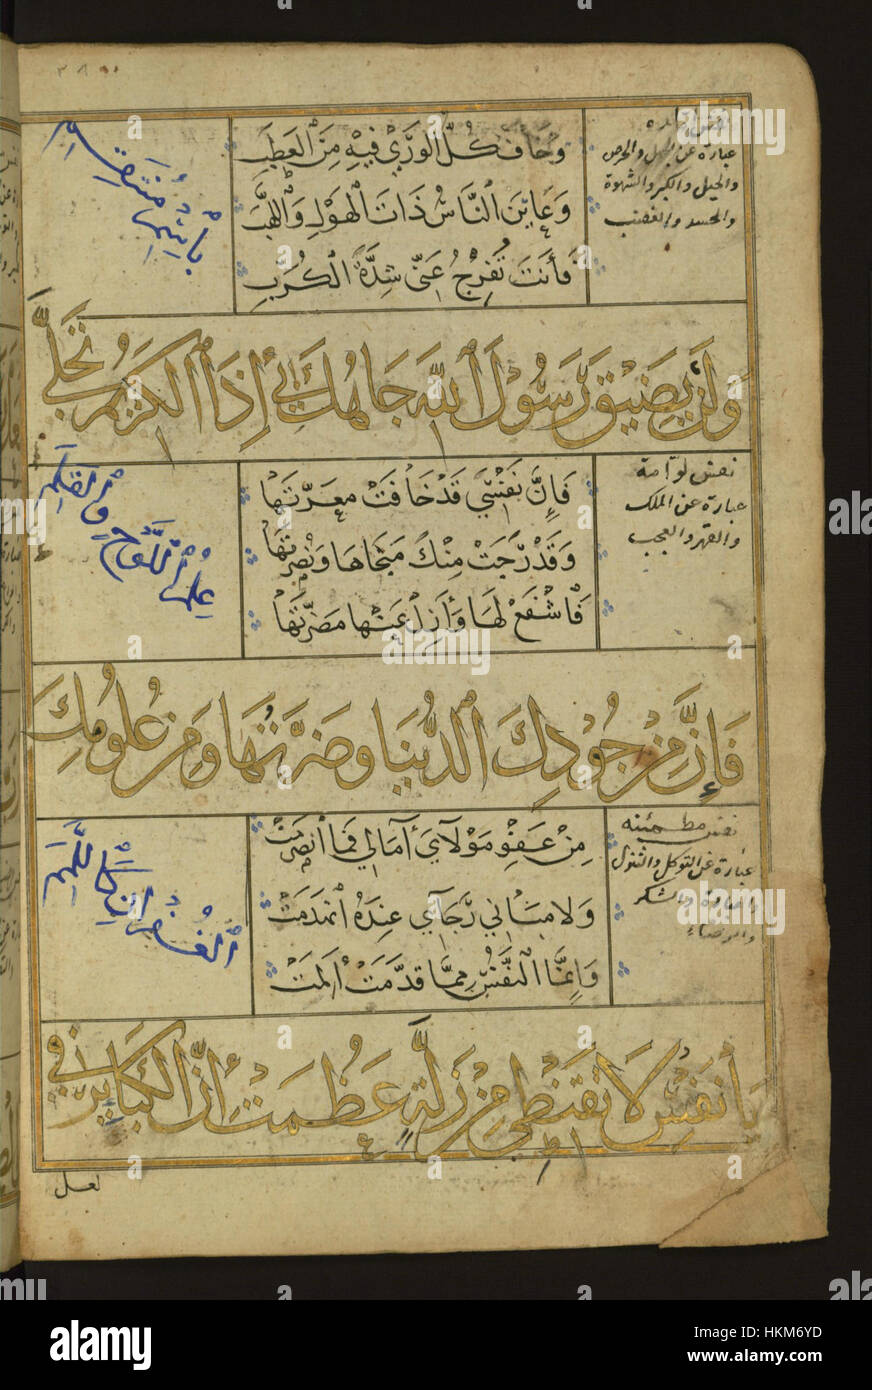 وخاف كل الوري فيه من العطب
وعاين الناس ذات الهول واللهب
فأنت تفرج عني شدة الكرب
عبارة عن الجهل والحرص
والحيل والكبر والشهوة
والحسد والغضب
باسم منتقم
ولن يضيق رسول الله جاهك بي إذا الكريم تحلى
فإن نفسي قد خافت معرتها
وقد رجت منك منجاها ونصرتها
فاشفع لها وأزل عنها مضرتها
نفس لوامة
عبارة عن الملك
والقهر والعجب
علم اللوح والقلم
فإن من جودك الدنيا وضرتها ومن علومك
من عفو مولاي آمالي فما انصرمت
ولا مثاني رجائي عنده انهدمت
وإنما النفس مما قدمت ألمت
نفس مطمئنه
عبارة عن التوكل والتذلل
والعبادة والشكر
والرضاء
الغفران كاللمم
يا نفس لا تقنطي من زلة عظمت إن الكبائر في
لعل
alamy
Image ID: HKM6YD
www.alamy.com